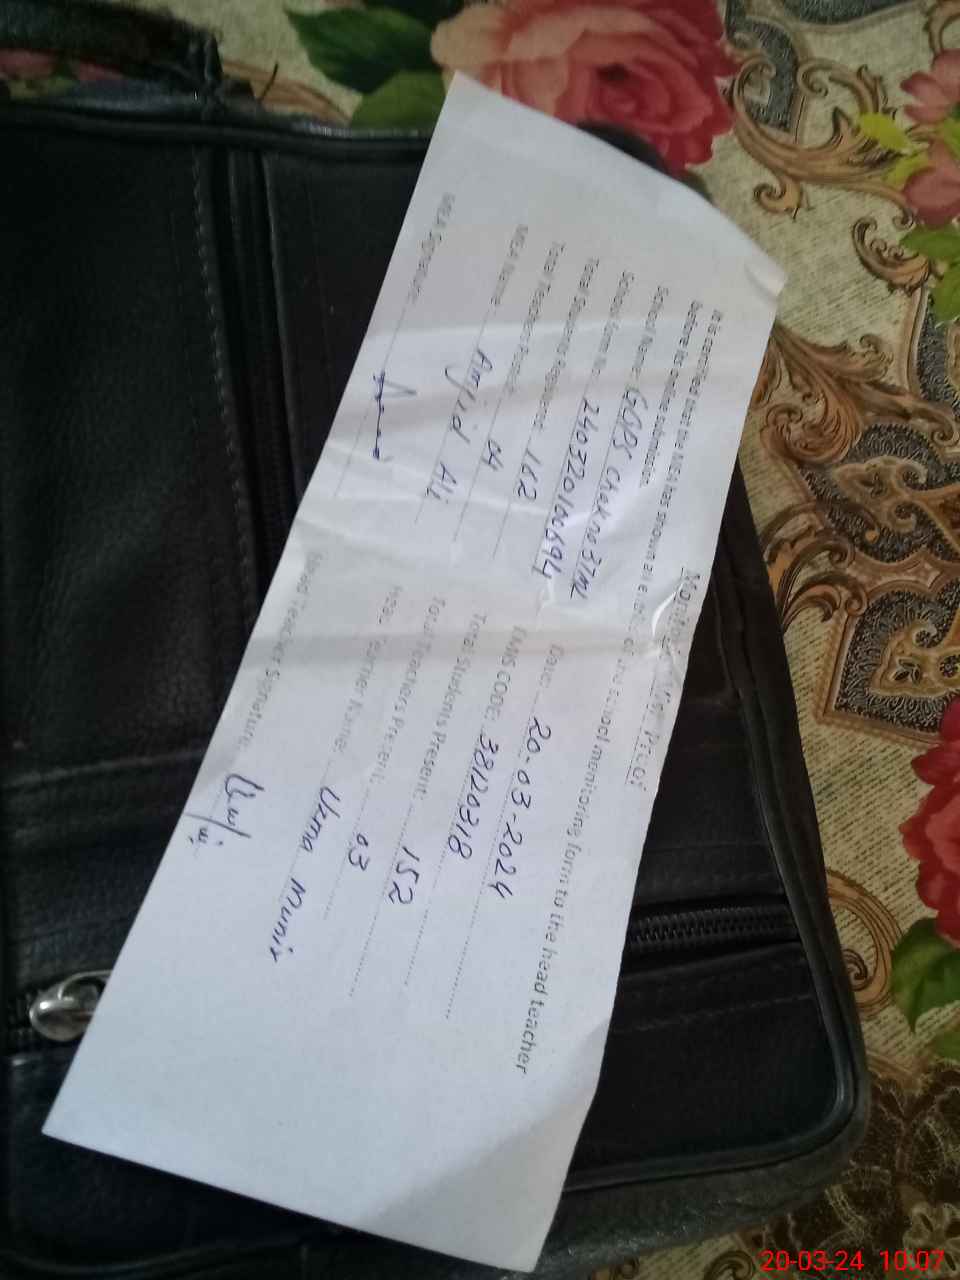 Monitoring Visit Proof
It is certified that the MEA has shown all entries of the school monitoring form to the head teacher
before its online submission.
School Name: GGPS chak no 37ML Date: 20-03-2024
School Gate No: EMIS CODE: 38120318
Total Students Registered: 162 Total Students Present: 152
Total Teachers Posted: 04 Total Teachers Present: 03
MEA Name: Amjid Ali Head Teacher Name: Uzma Munir
MEA Signature: Head Teacher Signature:
20-03-24 10:07